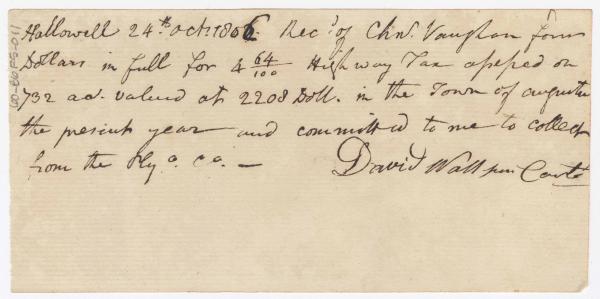 Hallowell 24th Octr 1806. Recd of Chs. Vaughan four
Dollars in full for 4 64/100 Highway Tax assessed on
732 ac. valued at 2208 Doll. in the Town of augusta
the present year and committed to me to collect
from the Plya. Co. —
David Wall